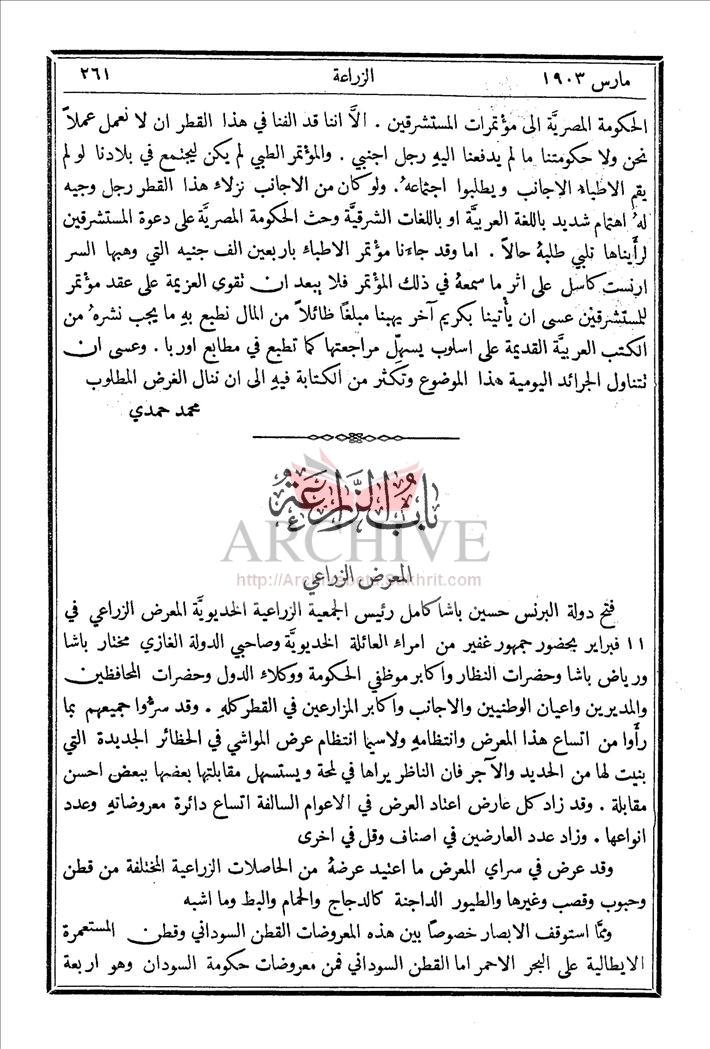 مارس ١٩٠٣ الزراعة ٢٦١
الحكومة المصريَّة الى مؤتمرات المستشرقين . الاَّ اننا قد الفنا في هذا القطر ان لا نعمل عملاً
نحن ولا حكومتنا ما لم يدفعنا اليهِ رجل اجنبي . والمؤتمر الطبي لم يكن ليجتمع في بلادنا لو لم
يقم الاطباء الاجانب ويطلبوا اجتماعهُ . ولو كان من الاجانب نزلاء هذا القطر رجل وجيه
لهُ اهتمام شديد باللغة العربيَّة او باللغات الشرقيَّة وحث الحكومة المصريَّة على دعوة المستشرقين
لرأيناها تلبي طلبهُ حالاً . اما وقد جاءنا مؤتمر الاطباء باربعين الف جنيه التي وهبها السر
ارنست كاسل على اثر ما سمعهُ في ذلك المؤتمر فلا يبعد ان تقوى العزيمة على عقد مؤتمر
للمستشرقين عسى ان يأتينا بكريم آخر يهبنا مبلغًا طائلاً من المال نطبع بهِ ما يجب نشرهُ من
الكتب العربيَّة القديمة على اسلوب يسهل مراجعتها كما تطبع في مطابع اوربا . وعسى ان
تتناول الجرائد اليومية هذا الموضوع وتكثر من الكتابة فيهِ الى ان ننال الغرض المطلوب
محمد حمدي
باب الزراعة
ARCHIVE
المعرض الزراعي
http://Archivebeta.Sakhrit.com
فتح دولة البرنس حسين باشا كامل رئيس الجمعية الزراعية الخديويَّة المعرض الزراعي في
١١ فبراير بحضور جمهور غفير من امراء العائلة الخديويَّة وصاحبي الدولة الغازي مختار باشا
ورياض باشا وحضرات النظار واكابر موظفي الحكومة ووكلاء الدول وحضرات المحافظين
والمديرين واعيان الوطنيين والاجانب واكابر المزارعين في القطر كلهِ . وقد سرُّوا جميعهم بما
رأَوا من اتساع هذا المعرض وانتظامهِ ولاسيما انتظام عرض المواشي في الحظائر الجديدة التي
بنيت لها من الحديد والآجر فان الناظر يراها في لمحة ويستسهل مقابلتها بعضها ببعض احسن
مقابلة . وقد زاد كل عارض اعتاد العرض في الاعوام السالفة اتساع دائرة معروضاتهِ وعدد
انواعها . وزاد عدد العارضين في اصناف وقل في اخرى
وقد عرض في سراي المعرض ما اعتيد عرضهُ من الحاصلات الزراعية المختلفة من قطن
وحبوب وقصب وغيرها والطيور الداجنة كالدجاج والحمام والبط وما اشبه
وممَّا استوقف الابصار خصوصًا بين هذه المعروضات القطن السوداني وقطن المستعمرة
الايطالية على البحر الاحمر اما القطن السوداني فمن معروضات حكومة السودان وهو اربعة